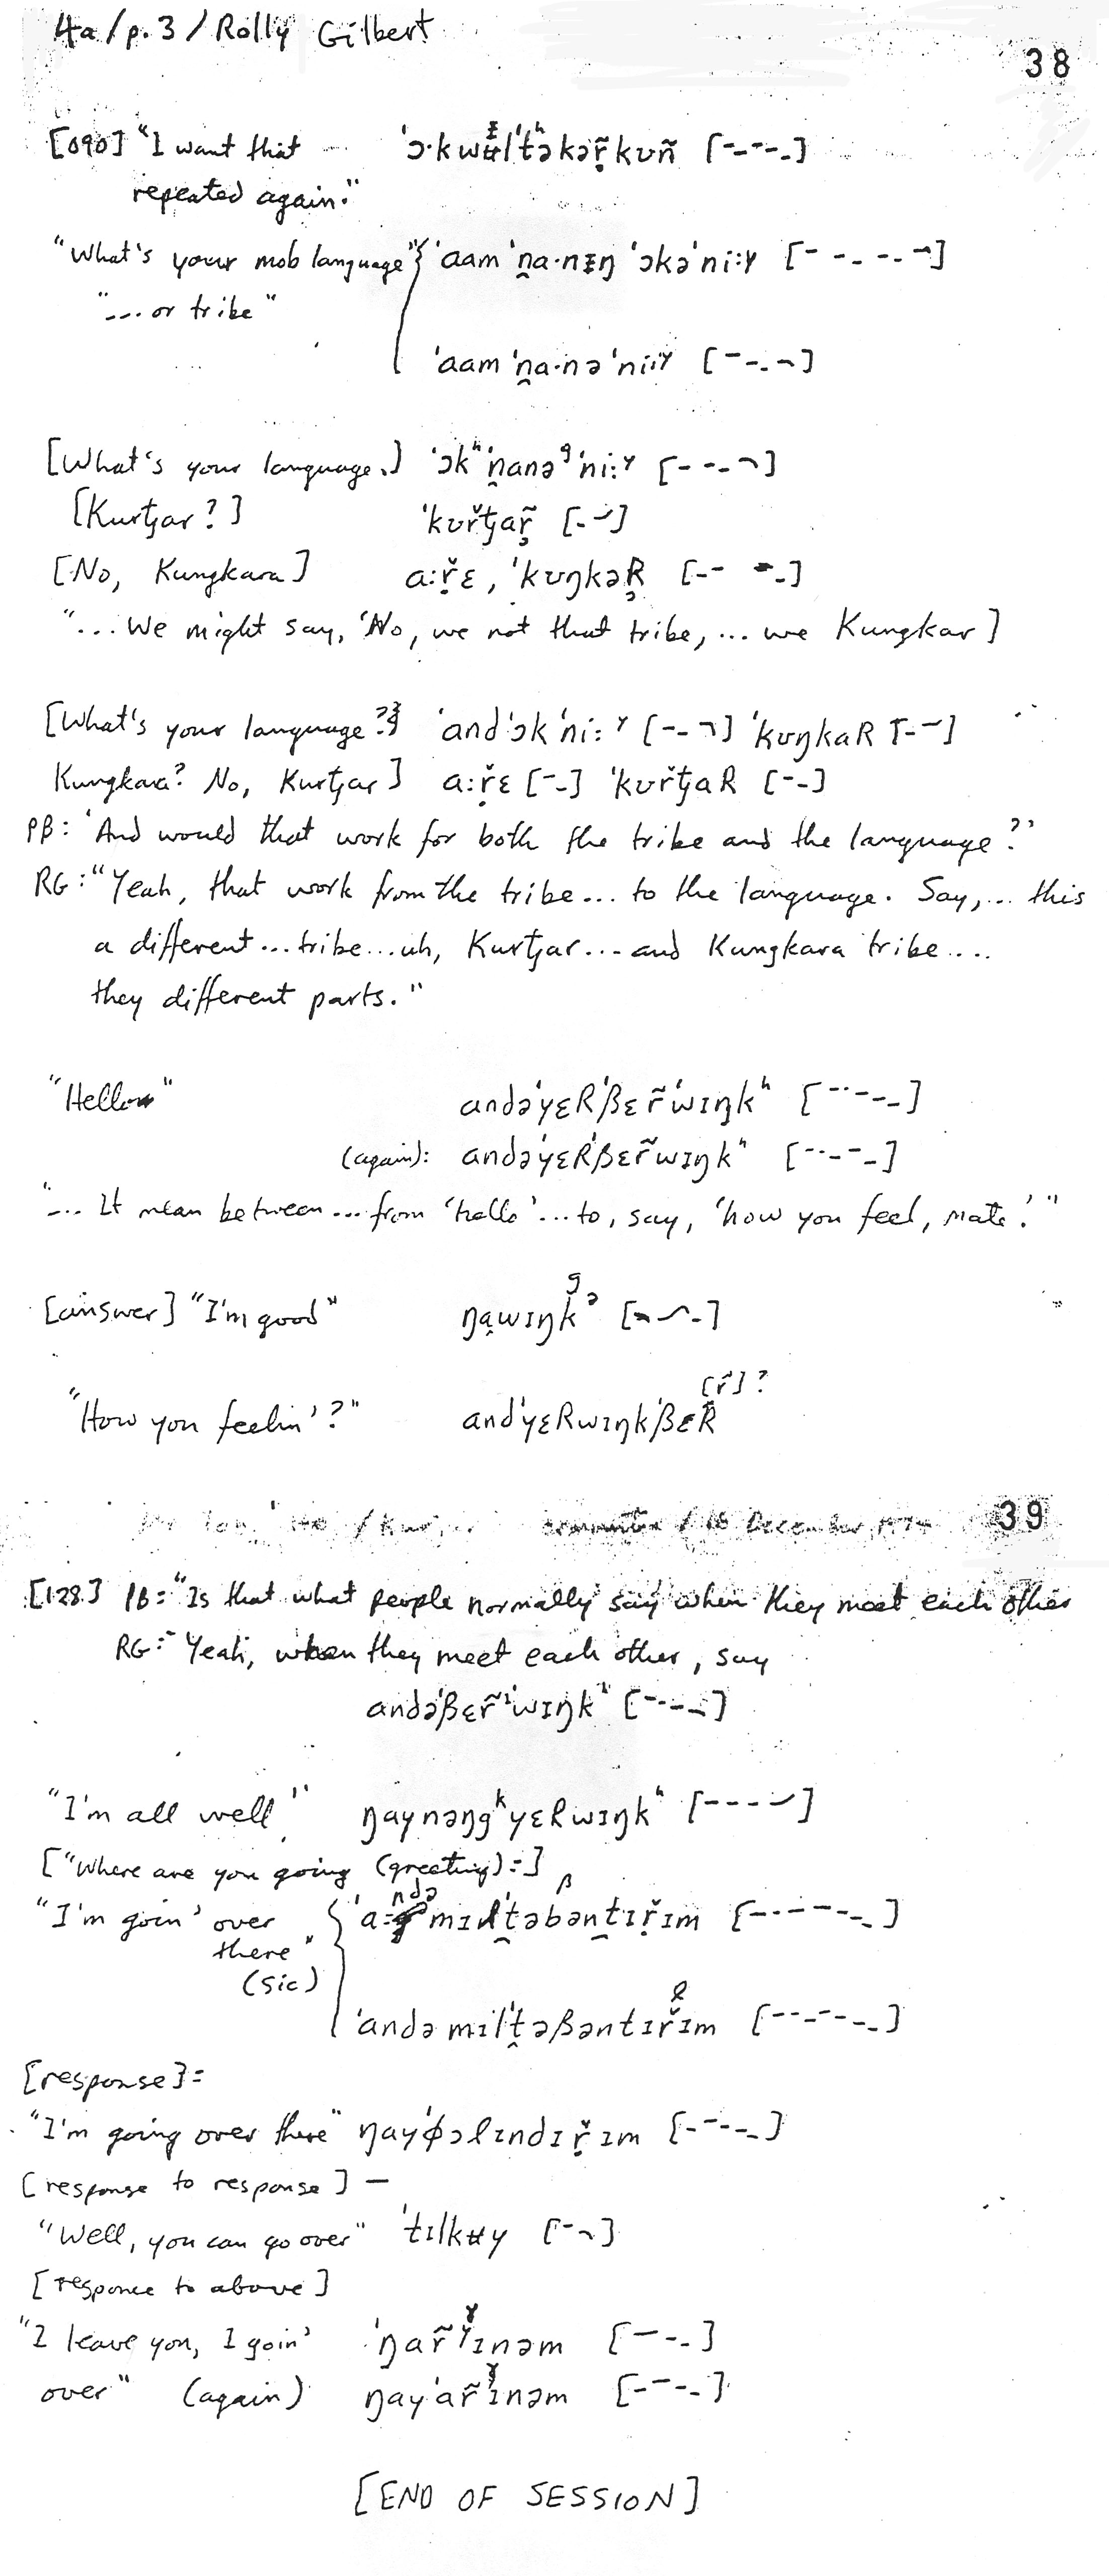 4a/p.3/Rolly Gilbert
38
[090] "I want that ... 'ɔ·kwʉl'tʰəkər̥̃kʊñ [-----]
repeated again."
"What's your mob language" { 'aam 'n̪a·nɪŋ 'ɔkə'ni:ɣ [- -- -- ¬]
"... or tribe"
'aam 'n̪a·nə'ni:ɣ [---¬]
[What's your language.] 'ɔkʰ'n̪anəᵍ'ni:ɣ [----¬]
[Kurtjar?] 'kʊřtjar̥̃ [-⁻]
[No, Kungkara] a:ṛ̌ɛ, 'kʊŋkəR̥ [-- --]
"... We might say, 'No, we not that tribe, ... we Kungkar]
[What's your language?] 'and'ɔk'ni:ɣ [--¬] 'kʊŋkaR [--]
Kungkara? No, Kurtjar] a:ṛ̌ɛ [--] 'kʊřtjaR [--]
PB: 'And would that work for both the tribe and the language?'
RG: "Yeah, that work from the tribe... to the language. Say,... this
a different... tribe... uh, Kurtjar... and Kungkara tribe....
they different parts."
"Hello" andə'ɣɛR'βɛr̃'wɪŋkʰ [-----]
(again): andə'ɣɛR'βɛr̃wɪŋkʰ [-----]
"... It mean between... from 'hello'... to, say, 'how you feel, mate.'"
[answer] "I'm good" ŋa̤wɪŋkᵊ [---]
g
[r̃]?
"How you feelin'?" and'ɣɛRwɪŋk'βɛR
39
December
[128] PB: "Is that what people normally say when they meet each other
RG: "Yeah, when they meet each other, say
andə'βɛr̃'wɪŋk [-----]
"I'm all well" ŋaynəŋgᵏɣɛRwɪŋkʰ [-----]
["Where are you going (greeting):]
"I'm goin' over { 'a:ndəmɪl't̪əbən̪tɪṛ̌ɪm [-------]
β
there"
(sic)
'andəmɪl't̪əβəntɪřɪm [-------]
[response]:
"I'm going over there" ŋay'ɸɔlɪndɪṛ̌ɪm [-----]
[response to response] —
"Well, you can go over" 'tɪlkʉy [-¬]
[response to above]
"I leave you, I goin' 'ŋar̃ɣɪnəm [---]
over" (again) ŋay'ar̃ɣɪnəm [----]
[END OF SESSION]